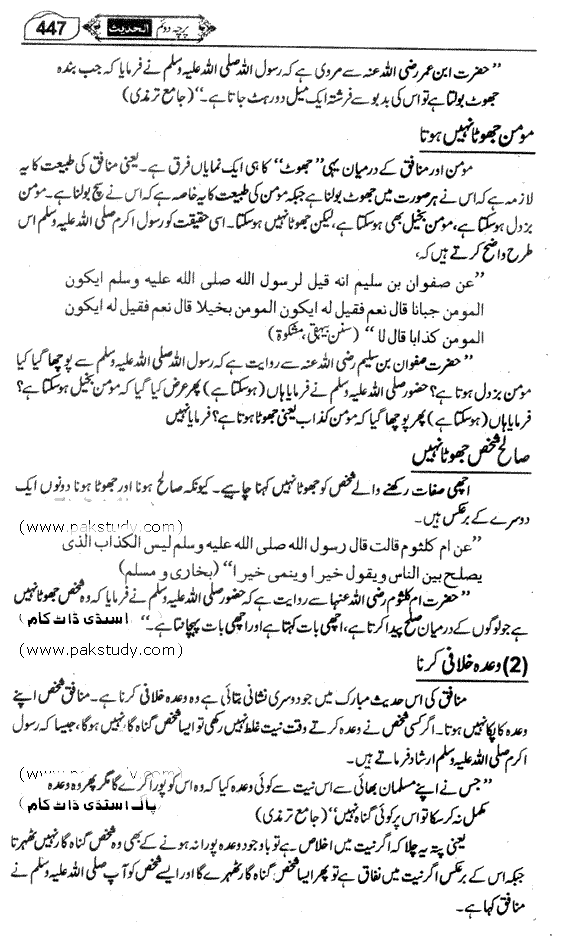 447 الحدیث پرچہ دوئم
’’حضرت ابن عمر رضی اللہ عنہ سے مروی ہے کہ رسول اللہ صلی اللہ علیہ وسلم نے فرمایا کہ جب بندہ
جھوٹ بولتا ہے تو اس کی بدبو سے فرشتہ ایک میل دور ہٹ جاتا ہے۔‘‘ (جامع ترمذی)
مؤمن جھوٹا نہیں ہوتا
مؤمن اور منافق کے درمیان یہی ’’جھوٹ‘‘ کا ہی ایک نمایاں فرق ہے۔ یعنی منافق کی طبیعت کا یہ
لازمہ ہے کہ اس نے ہر صورت میں جھوٹ بولنا ہے جبکہ مؤمن کی طبیعت کا یہ خاصہ ہے کہ اس نے سچ بولنا ہے۔ مؤمن
بزدل ہو سکتا ہے، مؤمن بخیل بھی ہو سکتا ہے، لیکن جھوٹا نہیں ہو سکتا۔ اسی حقیقت کو رسول اکرم صلی اللہ علیہ وسلم اس
طرح واضح کرتے ہیں کہ،
’’عن صفوان بن سليم انه قيل لرسول الله صلى الله عليه وسلم ايكون
المومن جبانا قال نعم فقيل له ايكون المومن بخيلا قال نعم فقيل له ايكون
المومن كذابا قال لا‘‘ (سنن بیہقی، مشکوٰۃ)
’’حضرت صفوان بن سلیم رضی اللہ عنہ سے روایت ہے کہ رسول اللہ صلی اللہ علیہ وسلم سے پوچھا گیا کیا
مؤمن بزدل ہوتا ہے؟ حضور صلی اللہ علیہ وسلم نے فرمایا ہاں (ہو سکتا ہے) پھر عرض کیا گیا کہ مؤمن بخیل ہو سکتا ہے؟
فرمایا ہاں (ہو سکتا ہے) پھر پوچھا گیا کہ مؤمن کذاب یعنی جھوٹا ہوتا ہے؟ فرمایا نہیں
صالح شخص جھوٹا نہیں
اچھی صفات رکھنے والے شخص کو جھوٹا نہیں کہنا چاہیے۔ کیونکہ صالح ہونا اور جھوٹا ہونا دونوں ایک
دوسرے کے برعکس ہیں۔
(www.pakstudy.com)
’’عن ام كلثوم قالت قال رسول الله صلى الله عليه وسلم ليس الكذاب الذى
يصلح بين الناس ويقول خيرا وينمى خيرا‘‘ (بخاری و مسلم)
(www.pakstudy.com)
’’حضرت ام کلثوم رضی اللہ عنہا سے روایت ہے کہ حضور صلی اللہ علیہ وسلم نے فرمایا کہ وہ شخص جھوٹا نہیں
ہے جو لوگوں کے درمیان صلح پیدا کرتا ہے، اچھی بات کہتا ہے اور اچھی بات پہچانتا ہے۔‘‘
اسٹڈی ڈاٹ کام)
(www.pakstudy.com)
(2) وعدہ خلافی کرنا
منافق کی اس حدیث مبارک میں جو دوسری نشانی بتائی ہے وہ وعدہ خلافی کرنا ہے۔ منافق شخص اپنے
وعدہ کا پکا نہیں ہوتا۔ اگر کسی شخص نے وعدہ کرتے وقت نیت غلط نہیں رکھی تو ایسا شخص گناہ گار نہیں ہوگا، جیسا کہ رسول
اکرم صلی اللہ علیہ وسلم ارشاد فرماتے ہیں۔
’’جس نے اپنے مسلمان بھائی سے اس نیت سے کوئی وعدہ کیا کہ وہ اس کو پورا کرے گا مگر پھر وہ وعدہ
مکمل نہ کر سکا تو اس پر کوئی گناہ نہیں‘‘ (جامع ترمذی)
پاک اسٹڈی ڈاٹ کام)
یعنی پتہ یہ چلا کہ اگر نیت میں اخلاص ہے تو باوجود وعدہ پورا نہ ہونے کے بھی وہ شخص گناہ گار نہیں ٹھہرتا
جبکہ اس کے برعکس اگر نیت میں نفاق ہے تو پھر ایسا شخص گناہ گار ٹھہرے گا اور ایسے شخص کو آپ صلی اللہ علیہ وسلم نے
منافق کہا ہے۔